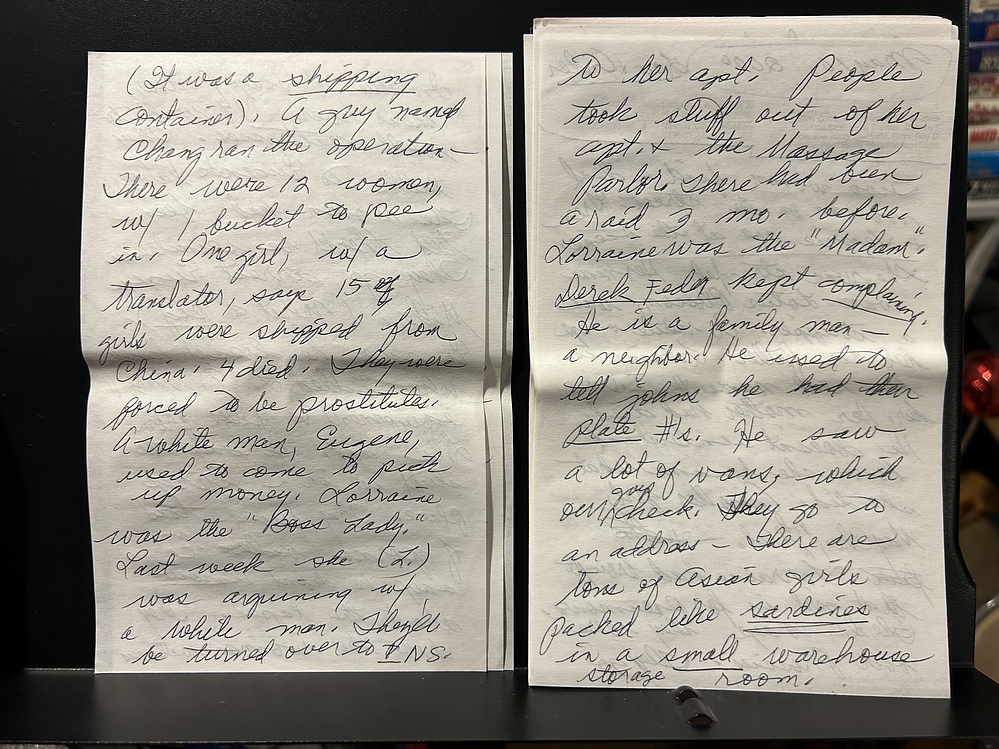 (It was a shipping
container). A guy named
Chang ran the operation—
There were 12 women,
w/ 1 bucket to pee
in. One girl, w/ a
translator, says 15 of
girls were shipped from
China. 4 died. They were
forced to be prostitutes.
A white man, Eugene,
used to come to pick
up money. Lorraine
was the "Boss Lady."
Last week she (L.)
was arguining w/
a white man. They'll
be turned over to INS.
to her apt. People
took stuff out of her
apt. & the Massage
Parlor. There had been
a raid 3 mo. before.
Lorraine was the "Madam".
Derek Feder kept complaining.
He is a family man—
a neighbor. He used to
tell johns he had their
plate #'s. He saw
a lot of vans, which
our guys check. They go to
an address — There are
tons of Asian girls
packed like sardines
in a small warehouse
storage room.